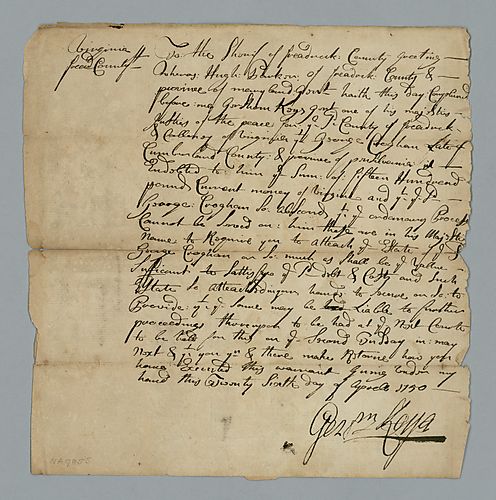 Virginia
Fred County
To the Sherif of Fredrick County Greeting
Wheras Hugh Parker of Fredrick County &
province of mary land Gent hath this Day Complaind
before me Gersham Keys Gent one of his majestis
Justhis of the peace for yͤ sd County of Fredrick
& Collony of Virginia yt George Croghan Late of
Cumberland County & province of pensilvania is
Endebted to him yͤ Sum of fifteen Hundread
pounds Current money of Virginia and yt yͤ sd
George Croghan so Abscond yt yͤ ordenary Process
Cannot be served on him these are in his Majestis
Name to Require you to attach yͤ Estate of yͤ sd
George Croghan or so much as shall be of Value
Sufficient to Sattisfie yͤ sd debt & Costs and such
Estate so attached in your hands to secure or so to
Provide yt yͤ same may be Liable to further
proceedings thereupon to be had at yͤ Next Courte
to be held for this on yͤ Second Tusday in may
Next & yt you yn & there make Returne how you
have Executed this warrant Given under my
hand this Twenty Sixth day of Aprill 1750
Gersm Keys